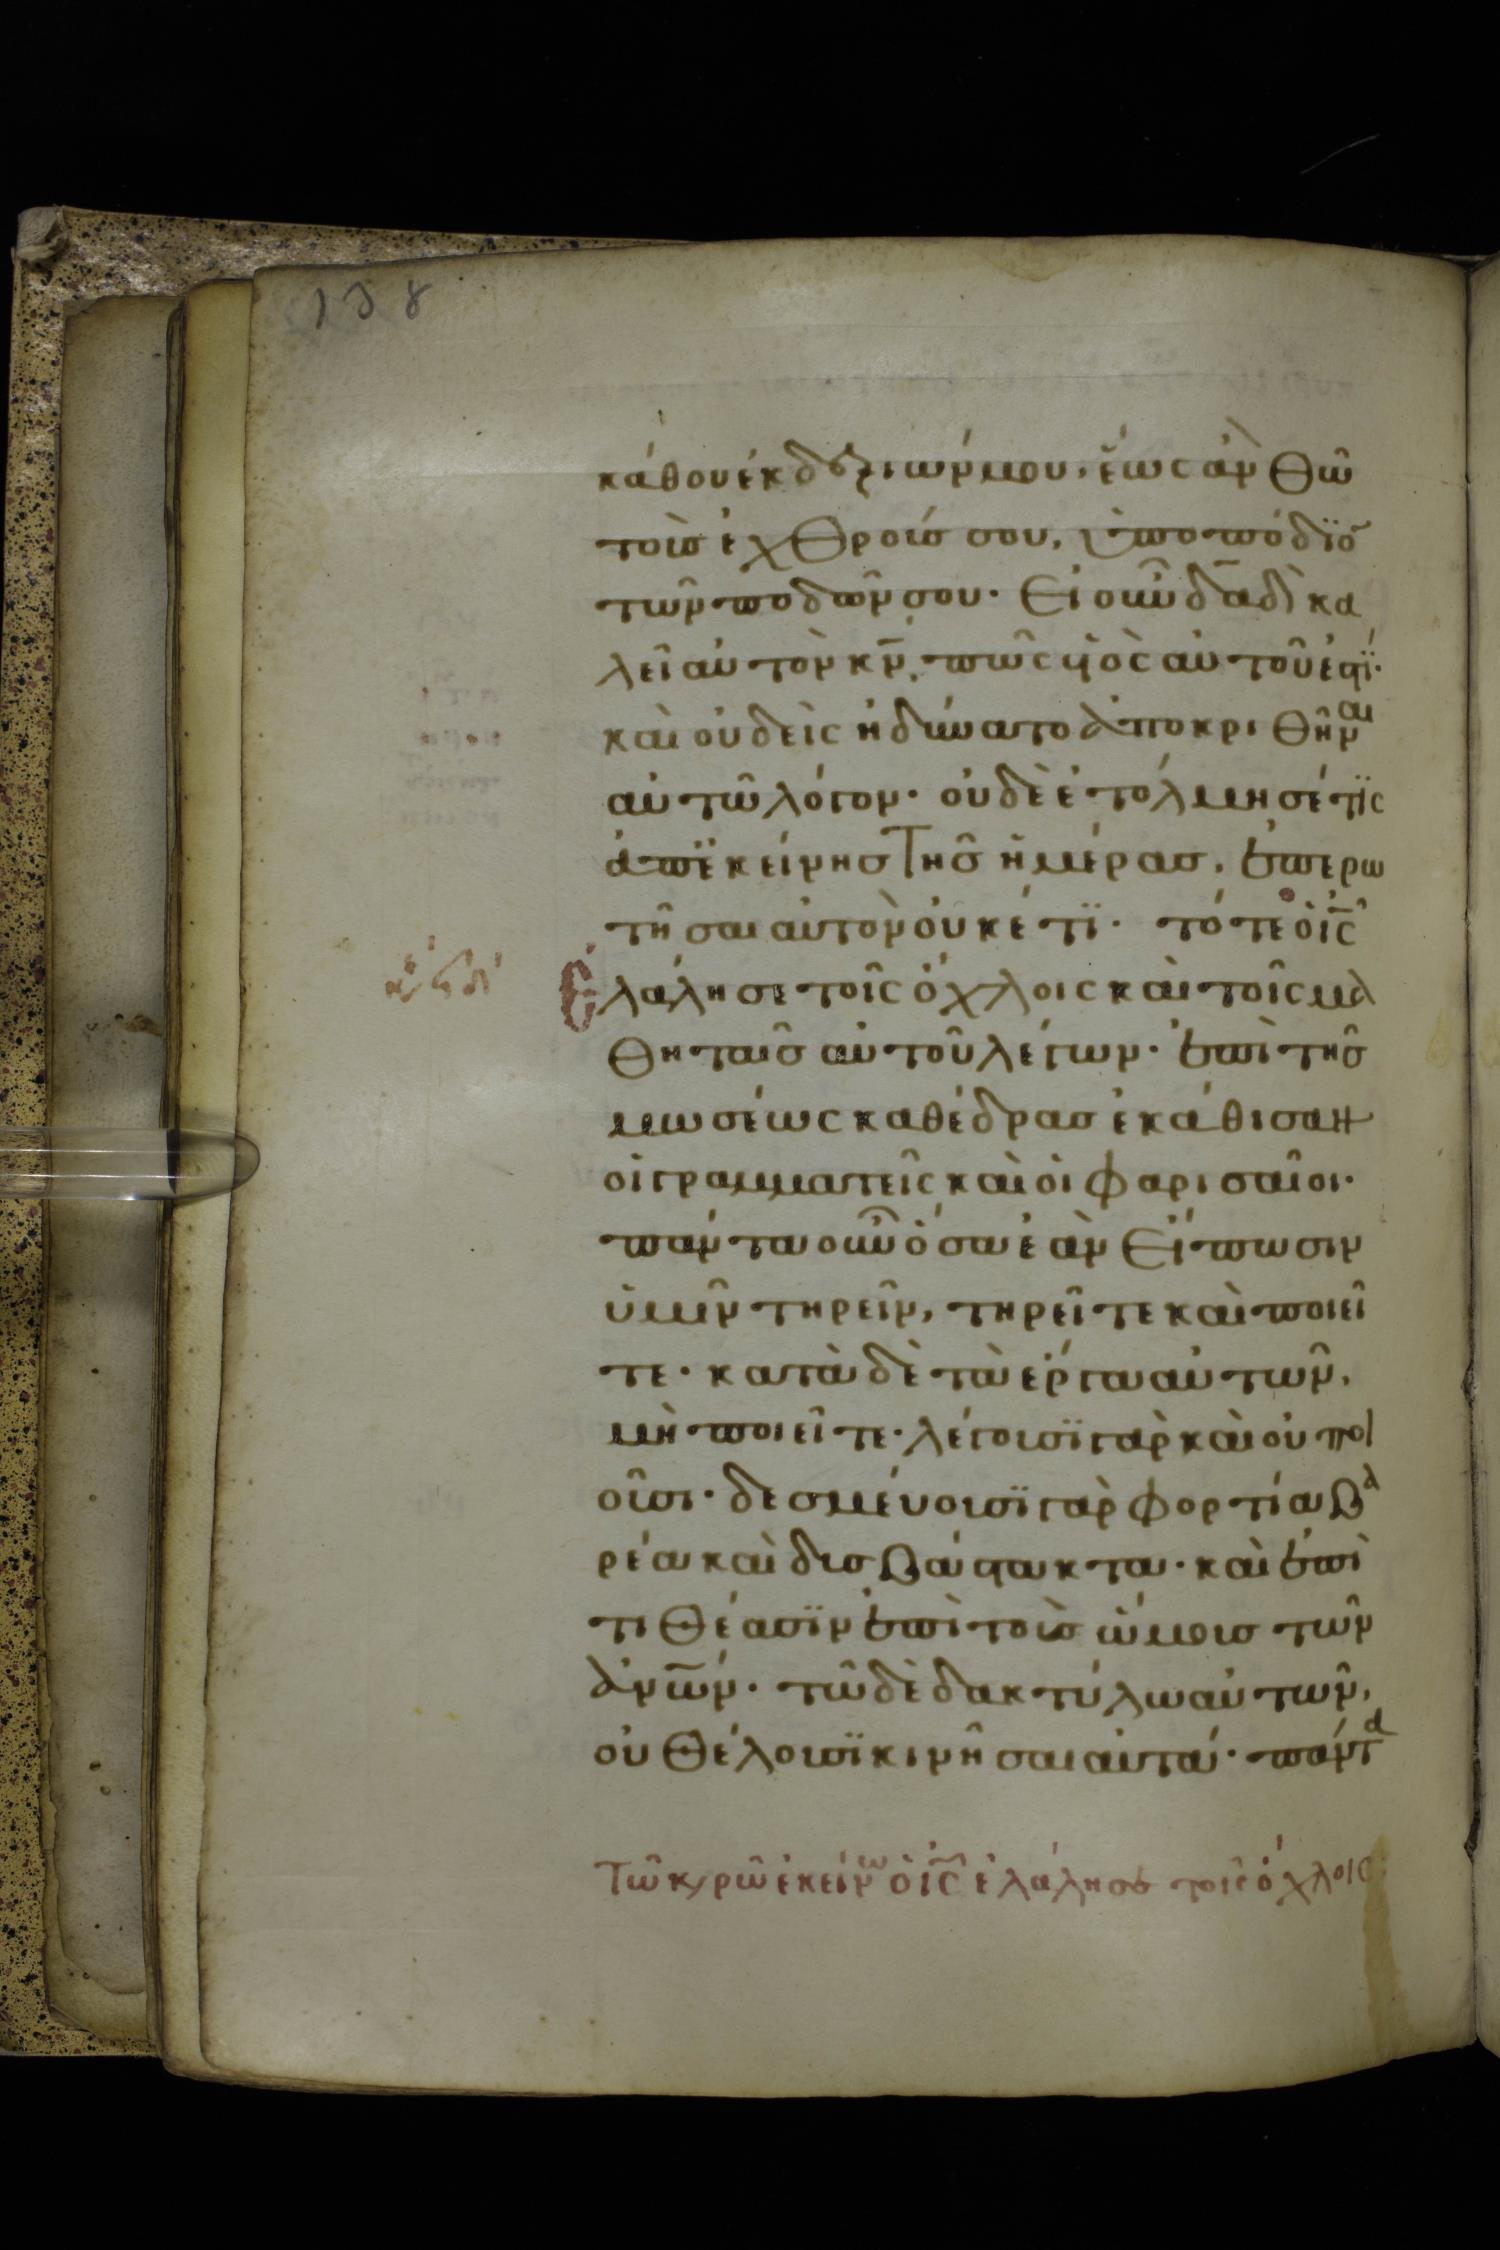 138
κάθου ἐκ δεξιῶν μου. ἕως ἂν θῶ
τοὺς ἐχθρούς σου, ὑποπόδϊο
τῶν ποδῶν σου. Εἰ οὖν δᾱδ κα
λεῖ αὐτὸν κν̄, πῶς υἱὸς αὐτοῦ ἐστϊ.
καὶ οὐδεὶς ἠδύνατο ἀποκριθῆναι
αὐτῶ λόγον. οὐδὲ ἐτόλμησέ τϊς
ἀπ' ἐκείνης τῆς ἡμέρας, ἐπερω
τῆσαι αὐτὸν οὐκέτϊ. τότε ὁ ις̄
ἐλάλησε τοῖς ὄχλοις καὶ τοῖς μα
θηταῖς αὐτοῦ λέγων. ἐπὶ τῆς
μωσέως καθέδρας ἐκάθισαν
οἱ γραμματεῖς καὶ οἱ φαρισαῖοι.
πάντα οὖν ὅσα ἐὰν εἴπωσιν
ὑμῖν τηρεῖν, τηρεῖτε καὶ ποιεῖ
τε. κατὰ δὲ τὰ ἔργα αὐτῶν,
μὴ ποιεῖτε. λέγουσϊ γὰρ καὶ οὐ ποι
οῦσι. δεσμεύουσϊ γὰρ φορτία βα
ρέα καὶ δυσβάστακτα. καὶ ἐπὶ
τιθέασϊν ἐπὶ τοὺς ὤμους τῶν
ἀν̄ων. τῶ δὲ δακτύλω αὐτῶν,
οὐ θέλουσϊ κινῆσαι αὐτά. πάντα
Τῶ κρῶ ἐκείνω ὁ ις̄ ἐλάλησε τοῖς ὄχλοις